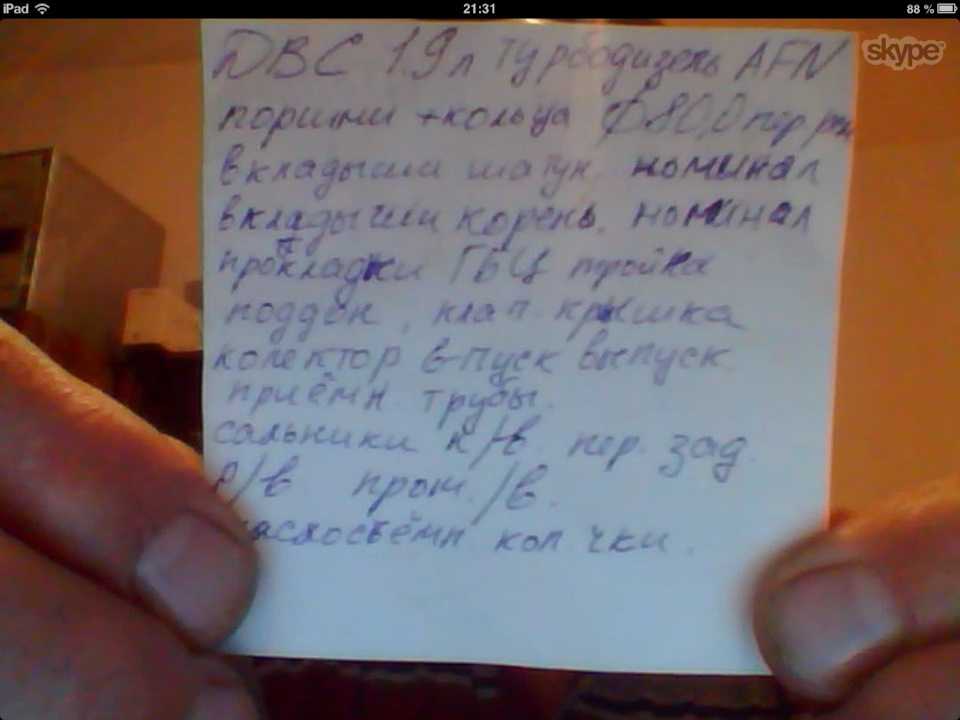 iPad 21:31 88 %
skype
ДВС 1.9л Турбодизель AFN
поршни + кольца Ф80,0 пер рем
вкладыши шатун. номинал
вкладыши корень. номинал
прокладки ГБЦ тройка
поддон, клап. крышка
колектор впуск выпуск
приёмн. трубы.
сальники к/в. пер. зад.
р/в. пром./в.
маслосъёмн кол чки.